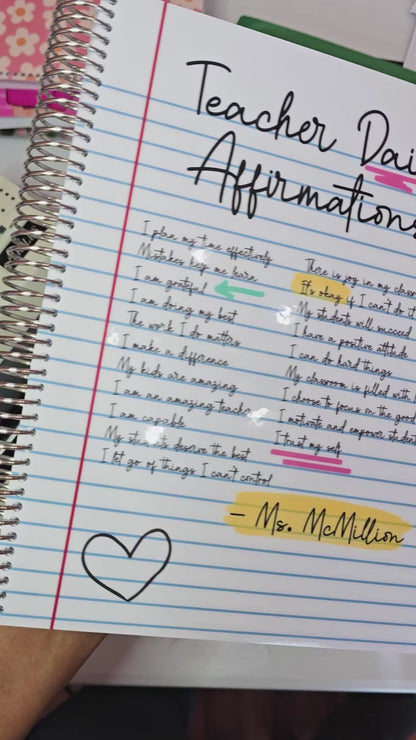 Teacher Dai
Affirmations
I plan my time effectively
Mistakes help me learn
I am grateful
I am doing my best
The work I do matters
I make a difference
My kids are amazing
I am an amazing teacher
I am capable
My students deserve the best
I let go of things I can't control
There is joy in my class
It's okay if I can't do it
My students will succeed
I have a positive attitude
I can do hard things
My classroom is filled with
I choose to focus on the good
I motivate and empower students
I my self
- Ms. McMillion